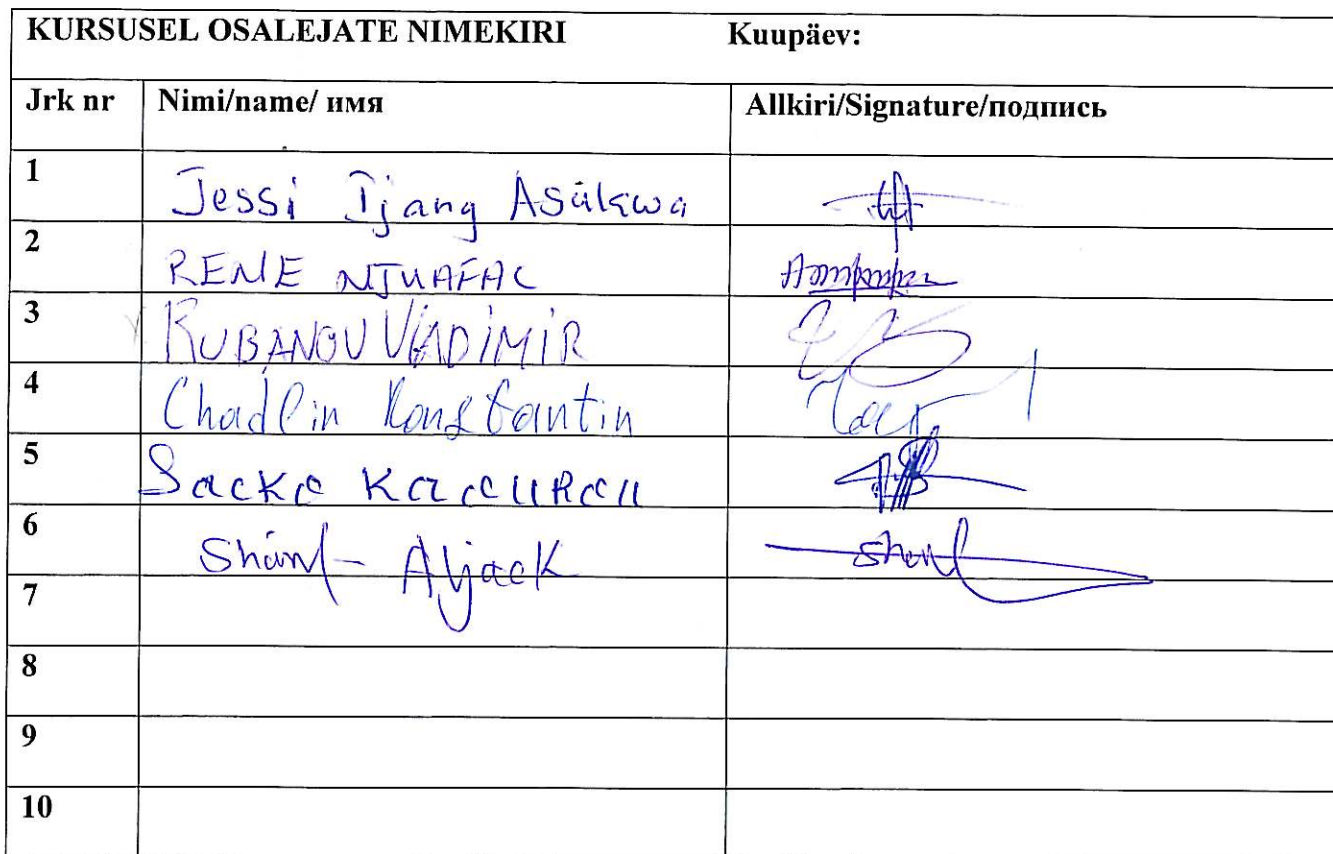 KURSUSEL OSALEJATE NIMEKIRI Kuupäev:
Jrk nr Nimi/name/ имя Allkiri/Signature/подпись
1 Jessi Ijang Asukwa
2 RENE NJUAFAC
3 RUBANOV VLADIMIR
4 Chadlin Konstantin
5 Sacko
6 Aljack
7
8
9
10